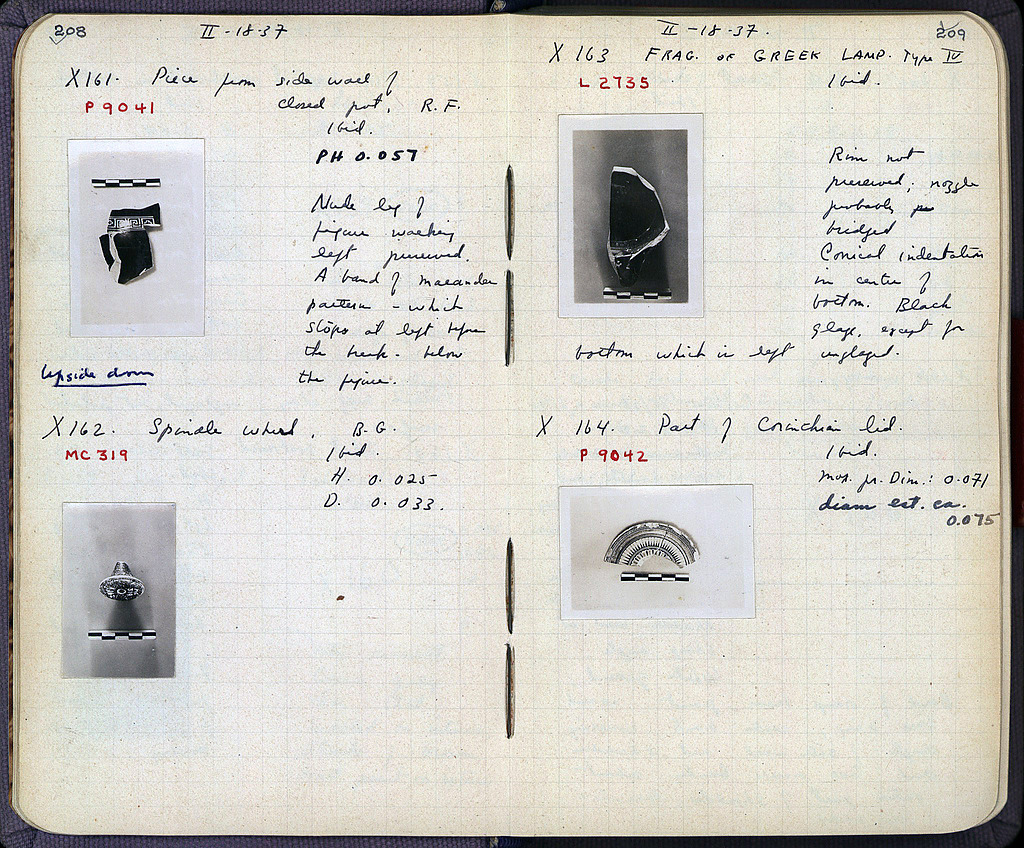 208
II-18-37
X161. Piece from side wall of
P 9041
closed pot, R.F.
Ibid.
PH 0.057
Nude leg of
figure walking
left preserved.
A band of maeander
pattern - which
stops at left before
the break - below
the figure.
Upside down
X162. Spindle whorl, B.G.
MC 319
Ibid.
H. 0.025
D. 0.033.
II-18-37.
209
X 163 FRAG. OF GREEK LAMP. Type IV
L 2735
Ibid.
Rim not
preserved; nozzle
probably
bridged
Conical indentation
in center of
bottom. Black
glaze, except for
bottom which is left unglazed.
X 164. Part of Corinthian lid.
P 9042
Ibid.
Max. pr. Dim.: 0.071
diam est. ca.
0.075